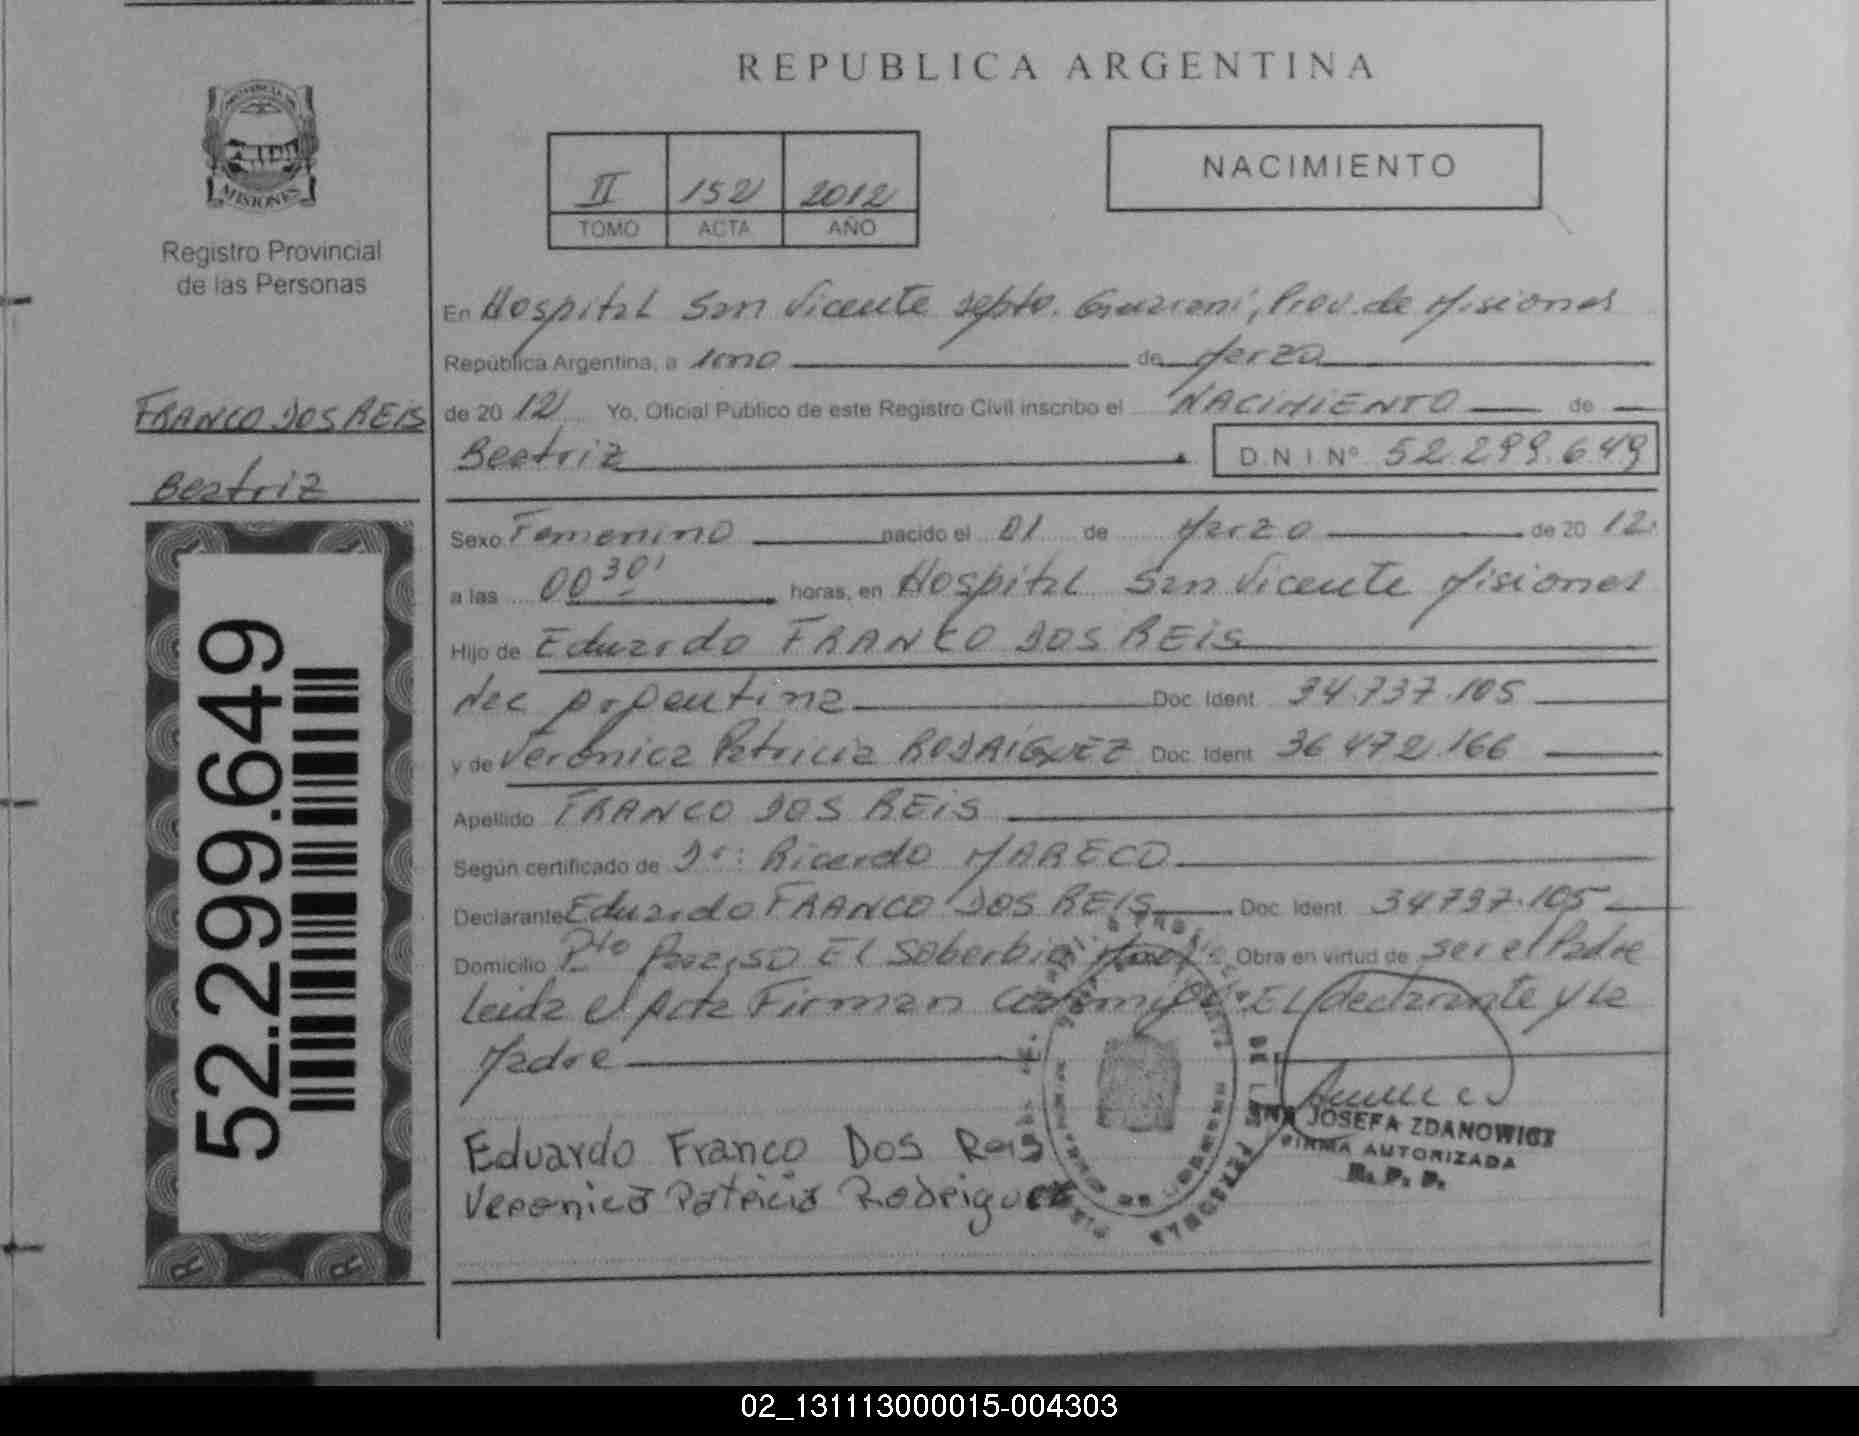 REPUBLICA ARGENTINA
MISIONES
Registro Provincial
de las Personas
II 152 2012
TOMO ACTA AÑO
NACIMIENTO
En Hospital San Vicente depto. Guaraní, Prov. de Misiones
República Argentina, a uno de Marzo
de 20 12 Yo, Oficial Público de este Registro Civil inscribo el NACIMIENTO de
Beatriz D.N.I Nº 52.299.649
FRANCO DOS REIS
Beatriz
52.299.649
Sexo Femenino nacido el 01 de Marzo de 20 12.
a las 00 30' horas, en Hospital San Vicente Misiones
Hijo de Eduardo FRANCO DOS REiS
Nac Argentina Doc. Ident. 34.737.105
y de Verónica Patricia RODRIGUEZ Doc. Ident. 36.472.166
Apellido FRANCO DOS REiS
Según certificado de Dr: Ricardo MARECO
Declarante Eduardo FRANCO DOS REIS Doc. Ident. 34737.105
Domicilio Pto Paraiso El Soberbio Obra en virtud de ser el Padre
Leida el Acta Firman Conmigo El declarante y la
Madre
Eduardo Franco Dos Reis
Veronica Patricia Rodriguez
ANA JOSEFA ZDANOWICZ
FIRMA AUTORIZADA
R. P. P.
02_131113000015-004303